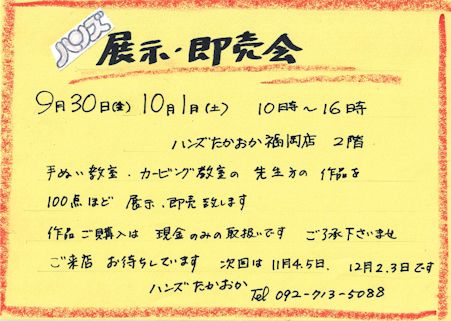 ハンズ
展示・即売会
9月30日(金) 10月1日(土) 10時〜16時
ハンズたかおか福岡店 2階
手ぬい教室・カービング教室の 先生方の 作品を
100点ほど 展示、即売致します
作品ご購入は 現金のみの取扱いです ご了承下さいませ
ご来店 お待ちしています 次回は 11月4.5日、12月2.3日です
ハンズたかおか Tel 092-713-5088